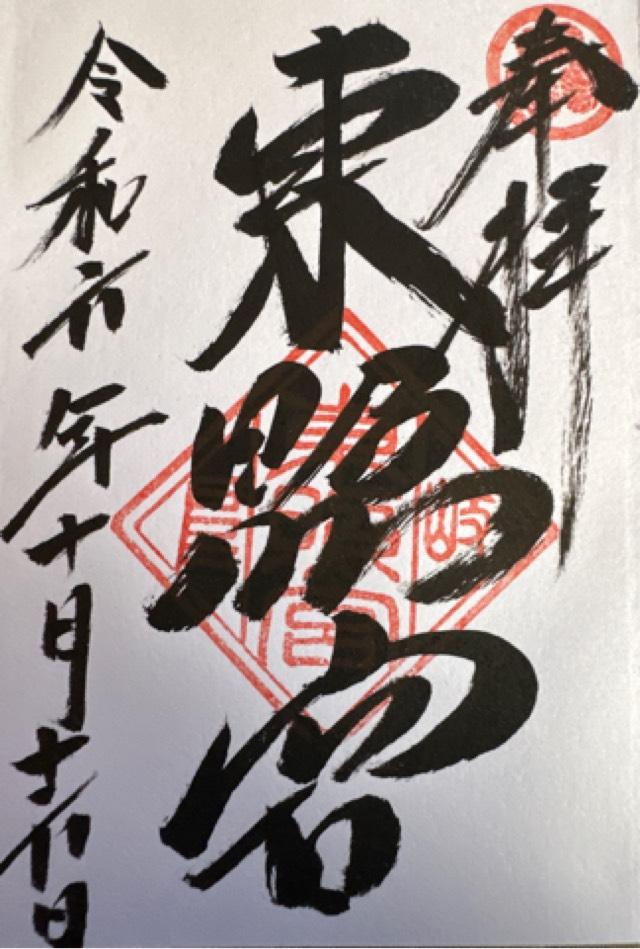 奉拝
東照宮
令和六年十月十六日